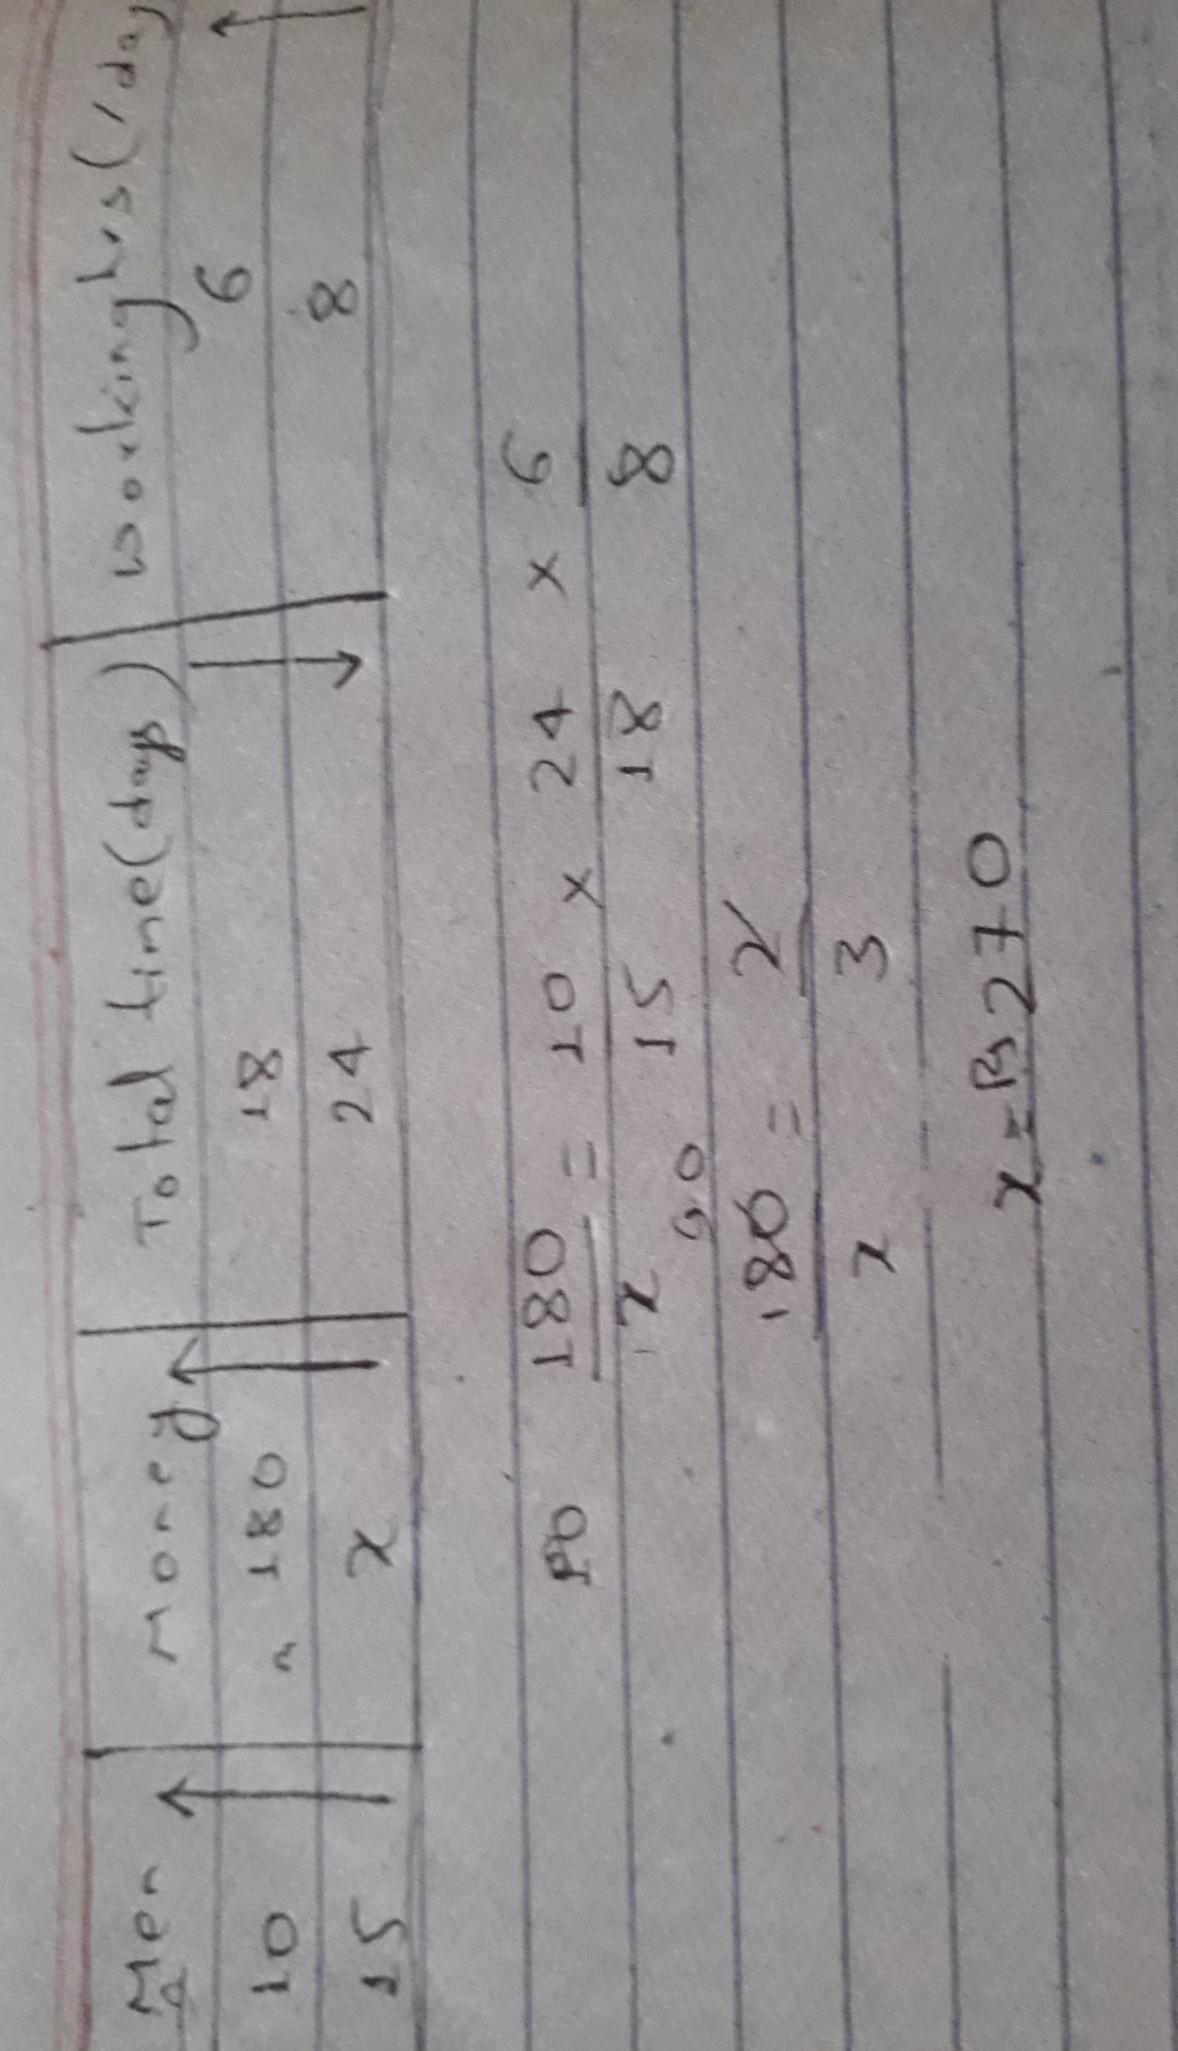 Men ↑ | Money ↑ | Total time(days) ↓ | working hrs(/day ↑
10 | 180 | 18 | 6
15 | x | 24 | 8
180/x = 10/15 × 24/18 × 6/8
90
180/x = 2/3
x = Rs 270